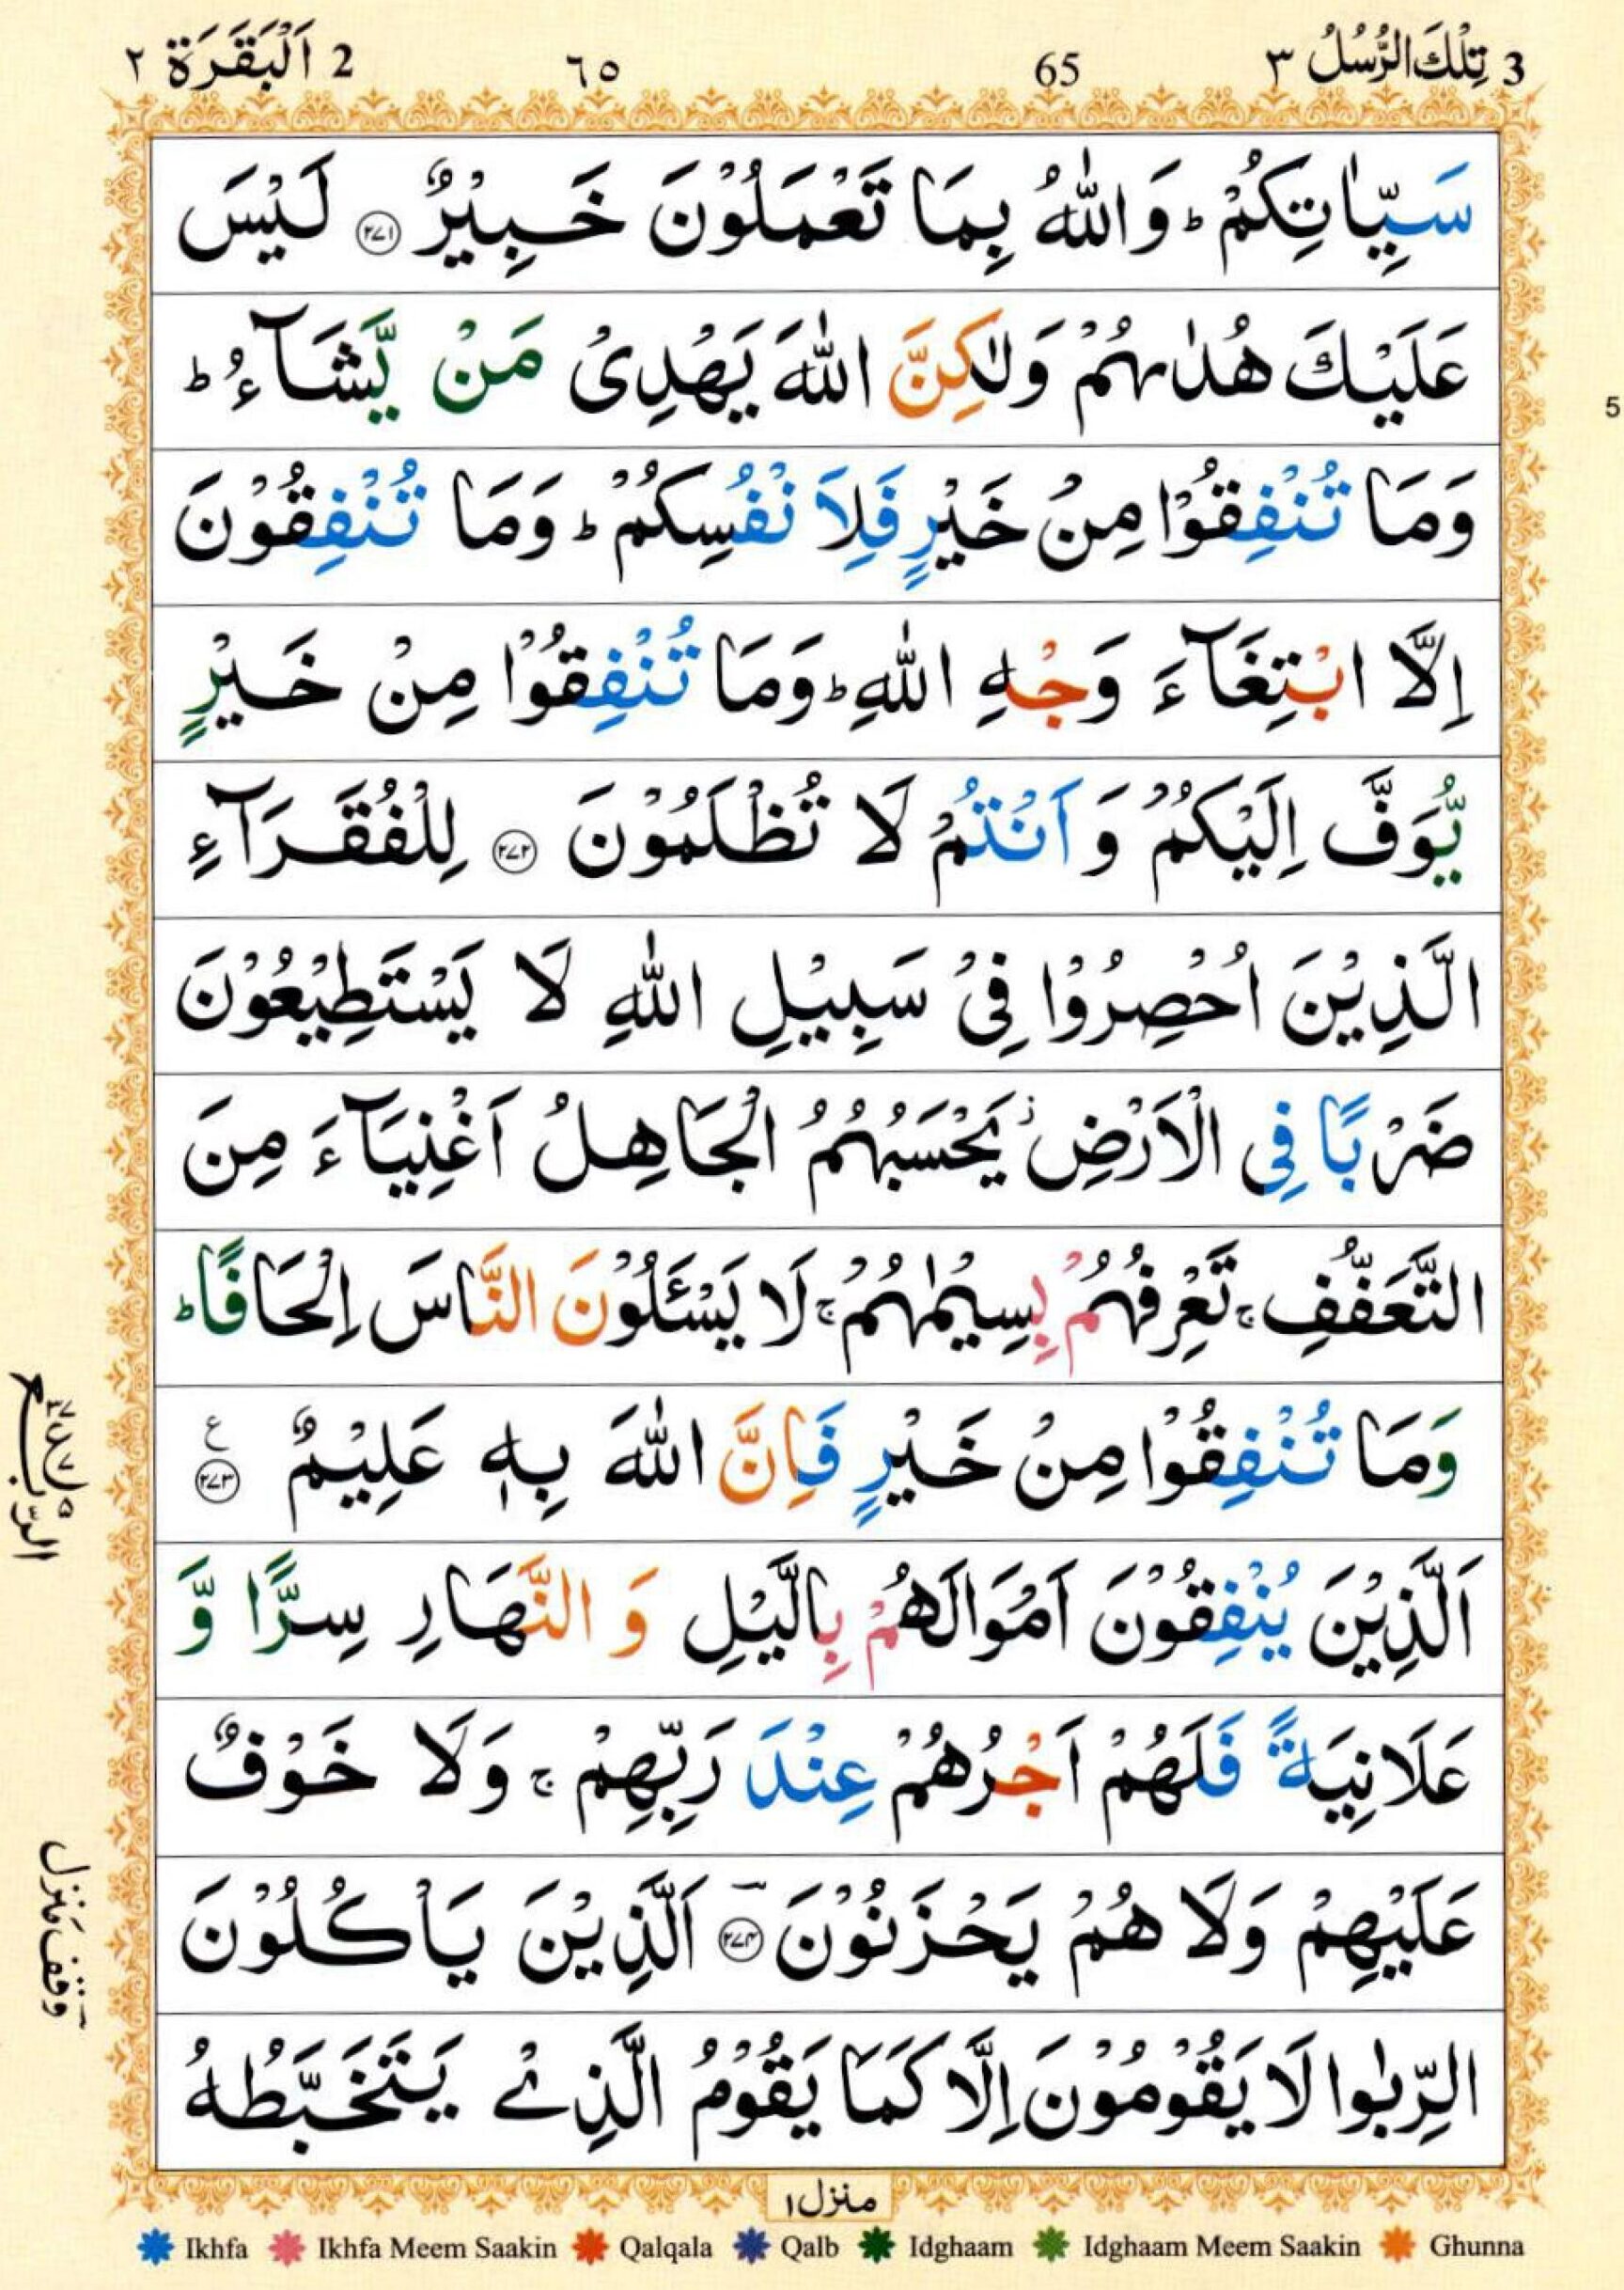 3 تِلْكَ الرُّسُلُ ٣ 65 ٦٥ 2 اَلْبَقَرَة ٢
سَيِّاٰتِكُمْ ؕ وَاللّٰهُ بِمَا تَعْمَلُوْنَ خَبِيْرٌ ۝۲۷۱ لَيْسَ
عَلَيْكَ هُدٰىهُمْ وَلٰكِنَّ اللّٰهَ يَهْدِىْ مَنْ يَّشَآءُ ؕ
5
وَمَا تُنْفِقُوْا مِنْ خَيْرٍ فَلِاَنْفُسِكُمْ ؕ وَمَا تُنْفِقُوْنَ
اِلَّا ابْتِغَآءَ وَجْهِ اللّٰهِ ؕ وَمَا تُنْفِقُوْا مِنْ خَيْرٍ
يُّوَفَّ اِلَيْكُمْ وَ اَنْتُمْ لَا تُظْلَمُوْنَ ۝۲۷۲ لِلْفُقَرَآءِ
الَّذِيْنَ اُحْصِرُوْا فِىْ سَبِيْلِ اللّٰهِ لَا يَسْتَطِيْعُوْنَ
ضَرْبًا فِى الْاَرْضِ ؗ يَحْسَبُهُمُ الْجَاهِلُ اَغْنِيَآءَ مِنَ
التَّعَفُّفِ ۚ تَعْرِفُهُمْ بِسِيْمٰهُمْ ۚ لَا يَسْـَٔلُوْنَ النَّاسَ اِلْحَافًا ؕ
وَمَا تُنْفِقُوْا مِنْ خَيْرٍ فَاِنَّ اللّٰهَ بِهٖ عَلِيْمٌ ۝۲۷۳ ع
الرّبع
اَلَّذِيْنَ يُنْفِقُوْنَ اَمْوَالَهُمْ بِالَّيْلِ وَ النَّهَارِ سِرًّا وَّ
عَلَانِيَةً فَلَهُمْ اَجْرُهُمْ عِنْدَ رَبِّهِمْ ۚ وَلَا خَوْفٌ
عَلَيْهِمْ وَلَا هُمْ يَحْزَنُوْنَ ۝۲۷۴ اَلَّذِيْنَ يَاْكُلُوْنَ
وقف منزل
الرِّبٰوا لَا يَقُوْمُوْنَ اِلَّا كَمَا يَقُوْمُ الَّذِىْ يَتَخَبَّطُهُ
منزل ۱
Ikhfa Ikhfa Meem Saakin Qalqala Qalb Idghaam Idghaam Meem Saakin Ghunna